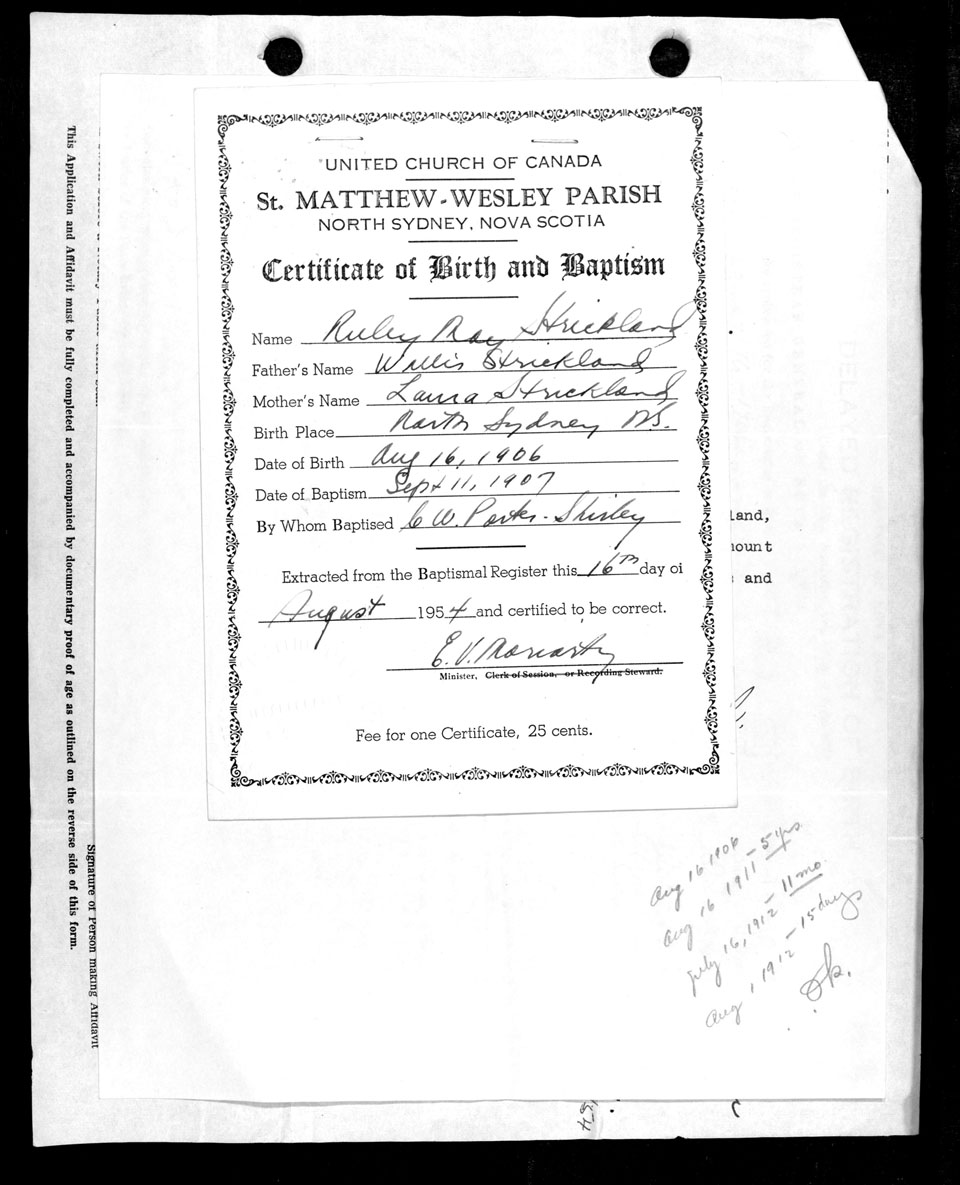 UNITED CHURCH OF CANADA
St. MATTHEW-WESLEY PARISH
NORTH SYDNEY, NOVA SCOTIA
Certificate of Birth and Baptism
Name Ruley Ray Strickland
Father's Name Willis Strickland
Mother's Name Laura Strickland
Birth Place North Sydney N.S.
Date of Birth Aug 16, 1906
Date of Baptism Sept 11, 1907
By Whom Baptised C W. Porter-Shirley
Extracted from the Baptismal Register this 16th day of
August 1954 and certified to be correct.
E. V. Moriarty
Minister, Clerk of Session, or Recording Steward.
Fee for one Certificate, 25 cents.
land,
mount
and
Aug 16 1906
Aug 16 1911 - 5 yrs
July 16, 1912 - 11 mo
Aug 1 1912 - 15 days
Ok.
This Application and Affidavit must be fully completed and accompanied by documentary proof of age as outlined on the reverse side of this form.
Signature of Person making Affidavit